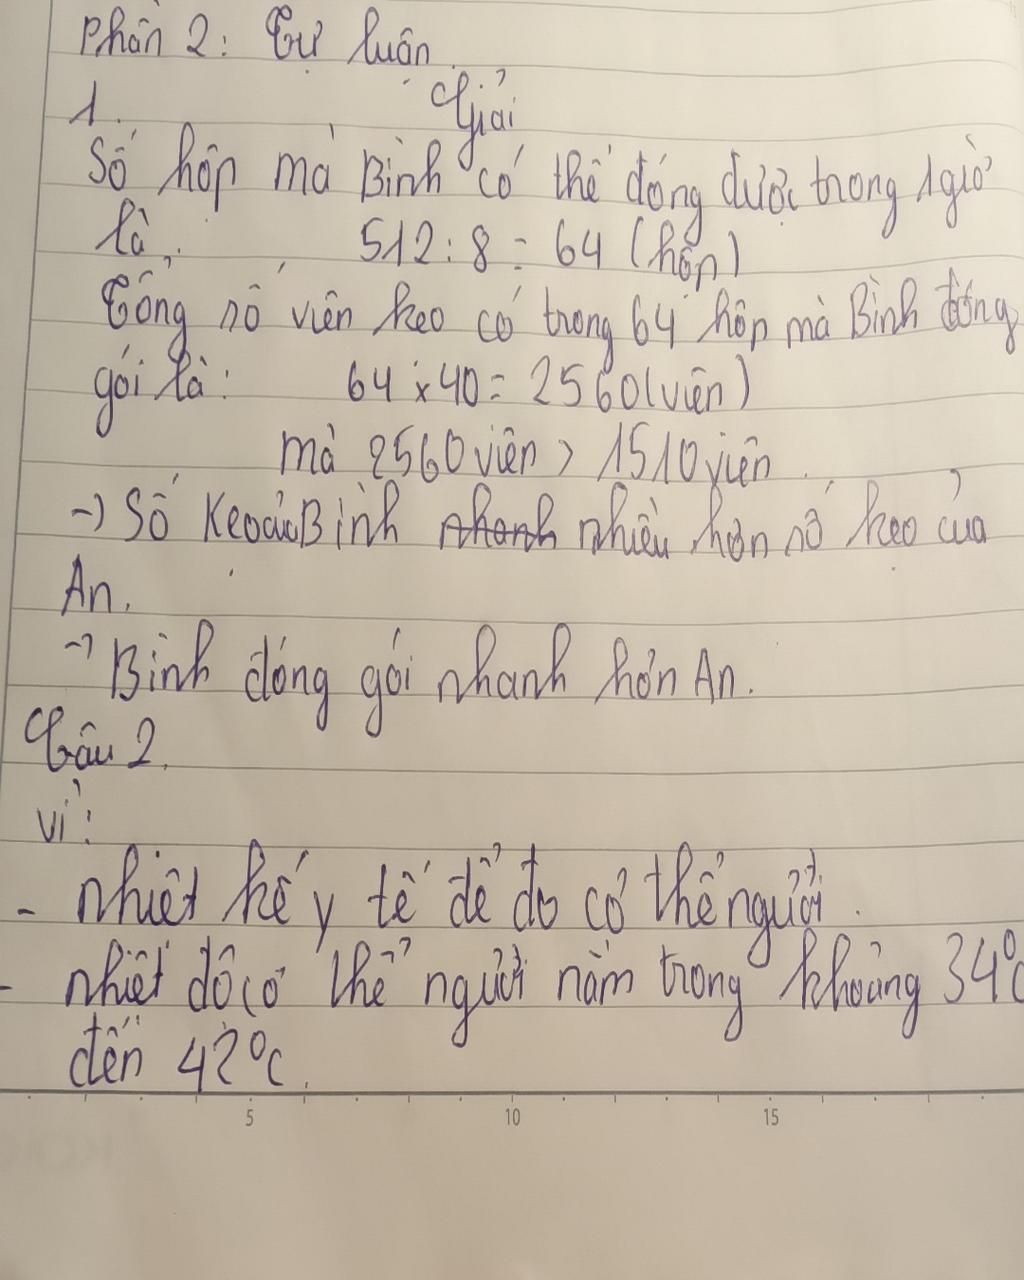 Phần 2: Tự luận.
1. Giải
Số hộp mà Bình có thể đóng được trong 1 giờ
là: 512 : 8 = 64 (hộp)
Tổng số viên kẹo có trong 64 hộp mà Bình đóng
gói là: 64 x 40 = 2560 (viên)
mà 2560 viên > 1510 viên.
-> Số kẹo của Bình nhanh nhiều hơn số kẹo của
An.
-> Bình đóng gói nhanh hơn An.
Câu 2.
Vì:
- nhiệt kế y tế để đo cơ thể người.
- nhiệt độ cơ thể người nằm trong khoảng 34°C
đến 42°C.
5 10 15